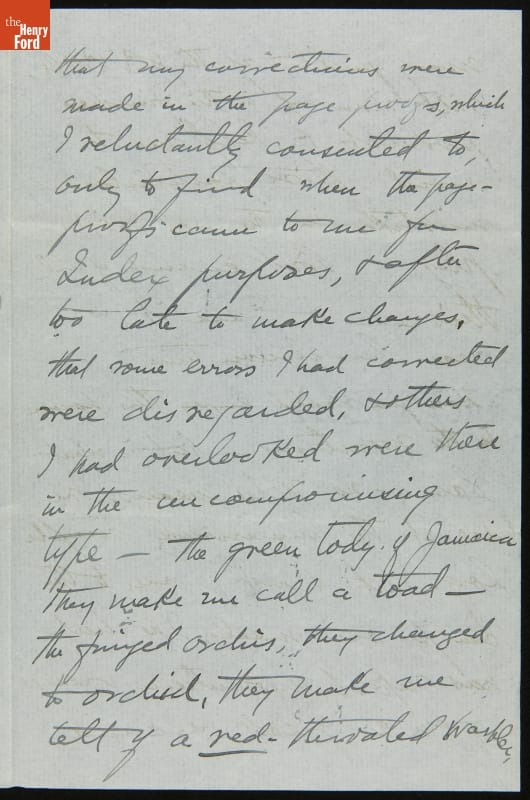 the
Henry
Ford
that my corrections were
made in the page proofs, which
I reluctantly consented to,
only to find when the page-
proofs came to me for
Index purposes, & after
too late to make changes,
that some errors I had corrected
were disregarded, & others
I had overlooked were there
in the uncompromising
type — the green tody of Jamaica
they make me call a toad —
the fringed orchis, they changed
to orchid, they make me
tell of a red-throated Warbler,